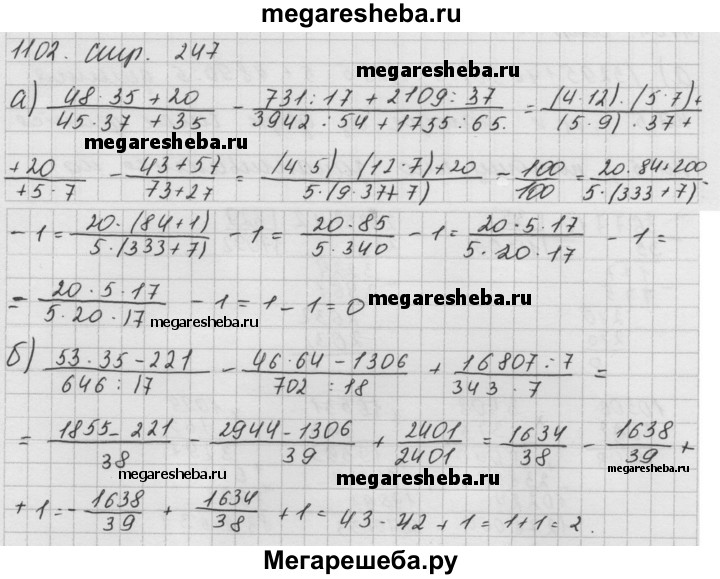 megaresheba.ru
1102. стр. 247
megaresheba.ru
а) (48·35+20)/(45·37+35) - (731:17+2109:37)/(3942:54+1755:65.) = ((4·12)·(5·7)+)/((5·9)·37+
megaresheba.ru
(+20)/(+5·7) - (43+57)/(73+27) = ((4·5) (12·7)+20)/(5·(9·37+7)) - 100/100 = (20·84+200)/(5·(333+7)).
- 1 = (20·(84+1))/(5·(333+7)) - 1 = (20·85)/(5·340) - 1 = (20·5·17)/(5·20·17) - 1 =
= (20·5·17)/(5·20·17) - 1 = 1 - 1 = 0 megaresheba.ru
megaresheba.ru
б) (53·35-221)/(646:17) - (46·64-1306)/(702:18) + (16807:7)/(343·7) =
= (1855-221)/38 - (2944-1306)/39 + 2401/2401 = 1634/38 - 1638/39 +
megaresheba.ru megaresheba.ru megaresheba.ru
+ 1 = - 1638/39 + 1634/38 + 1 = 43 - 42 + 1 = 1 + 1 = 2.
Мегарешеба.ру